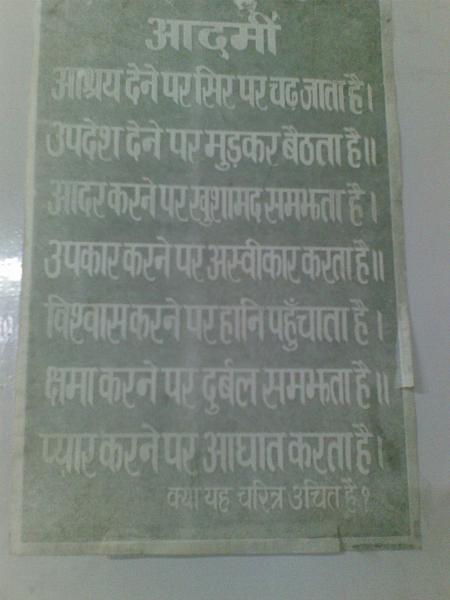 आदमीं
आश्रय देने पर सिर पर चढ़ जाता है।
उपदेश देने पर मुड़कर बैठता है॥
आदर करने पर खुशामद समझता है।
उपकार करने पर अस्वीकार करता है॥
विश्वास करने पर हानि पहुँचाता है।
क्षमा करने पर दुर्बल समझता है॥
प्यार करने पर आघात करता है।
क्या यह चरित्र उचित है ?